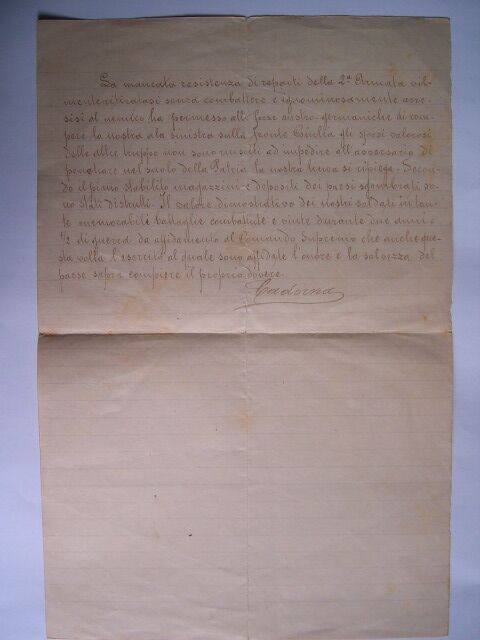 La mancata resistenza di reparti della 2ª Armata vil-
mente ritiratasi senza combattere e ignominosamente arre-
sisi al nemico ha permesso alle forze austro-germaniche di rom-
pere la nostra ala sinistra sulla fronte Giulia gli sforzi valorosi
delle altre truppe non sono riusciti ad impedire all'avversario di
penetrare nel suolo della Patria la nostra linea si ripiega. Secon-
do il piano stabilito magazzini e depositi dei paesi sgombrati so-
no stati distrutti. Il valore dimostrativo dei nostri soldati in tan-
te memorabili battaglie combattute e vinte durante due anni e
½ di guerra da affidamento al Comando Supremo che anche que-
sta volta l'esercito al quale sono affidate l'onore e la salvezza del
paese saprà compiere il proprio dovere.
Cadorna